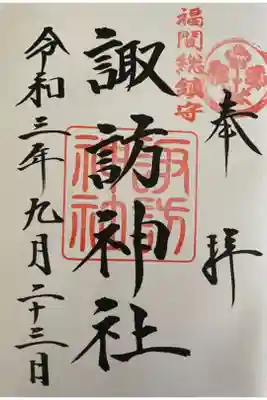 福間総鎮守
奉拝
諏訪神社
諏訪
神社
令和三年九月二十三日